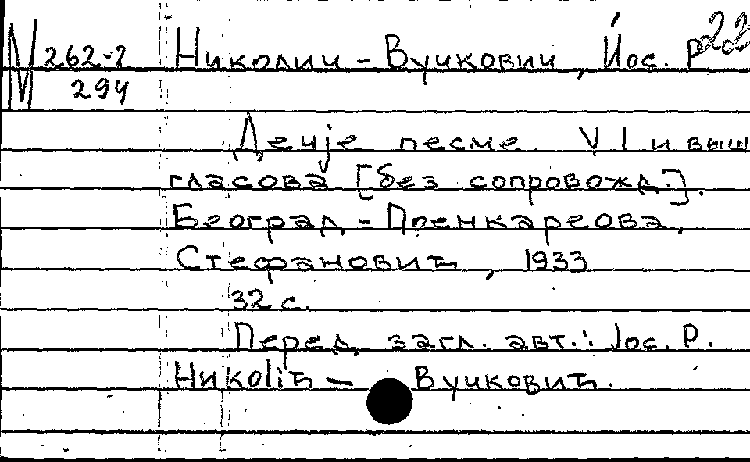 М 262-2 Николич - Вучкович, Йос. Р. 22
294
Дечје песме. VI и выш
гласова [без сопровожд.].
Београд - Поенкареова,
Стефановић, 1933
32 с.
Перед загл. авт.: Јос. Р.
Никоlić - Вучковић.